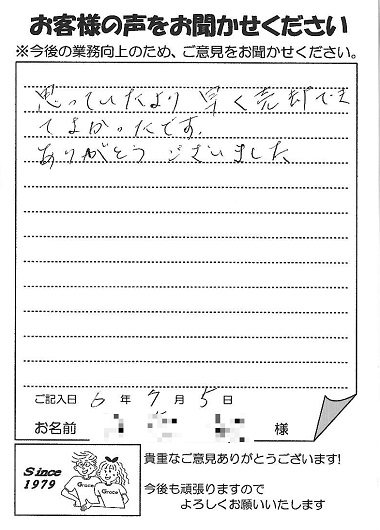 お客様の声をお聞かせください
※今後の業務向上のため、ご意見をお聞かせください。
思っていたより 早く売却でき
てよかったです。
ありがとう ございました
ご記入日 6 年 7 月 5 日
お名前 様
Since
1979
Grace
Grace
貴重なご意見ありがとうございます!
今後も頑張りますので
よろしくお願いいたします